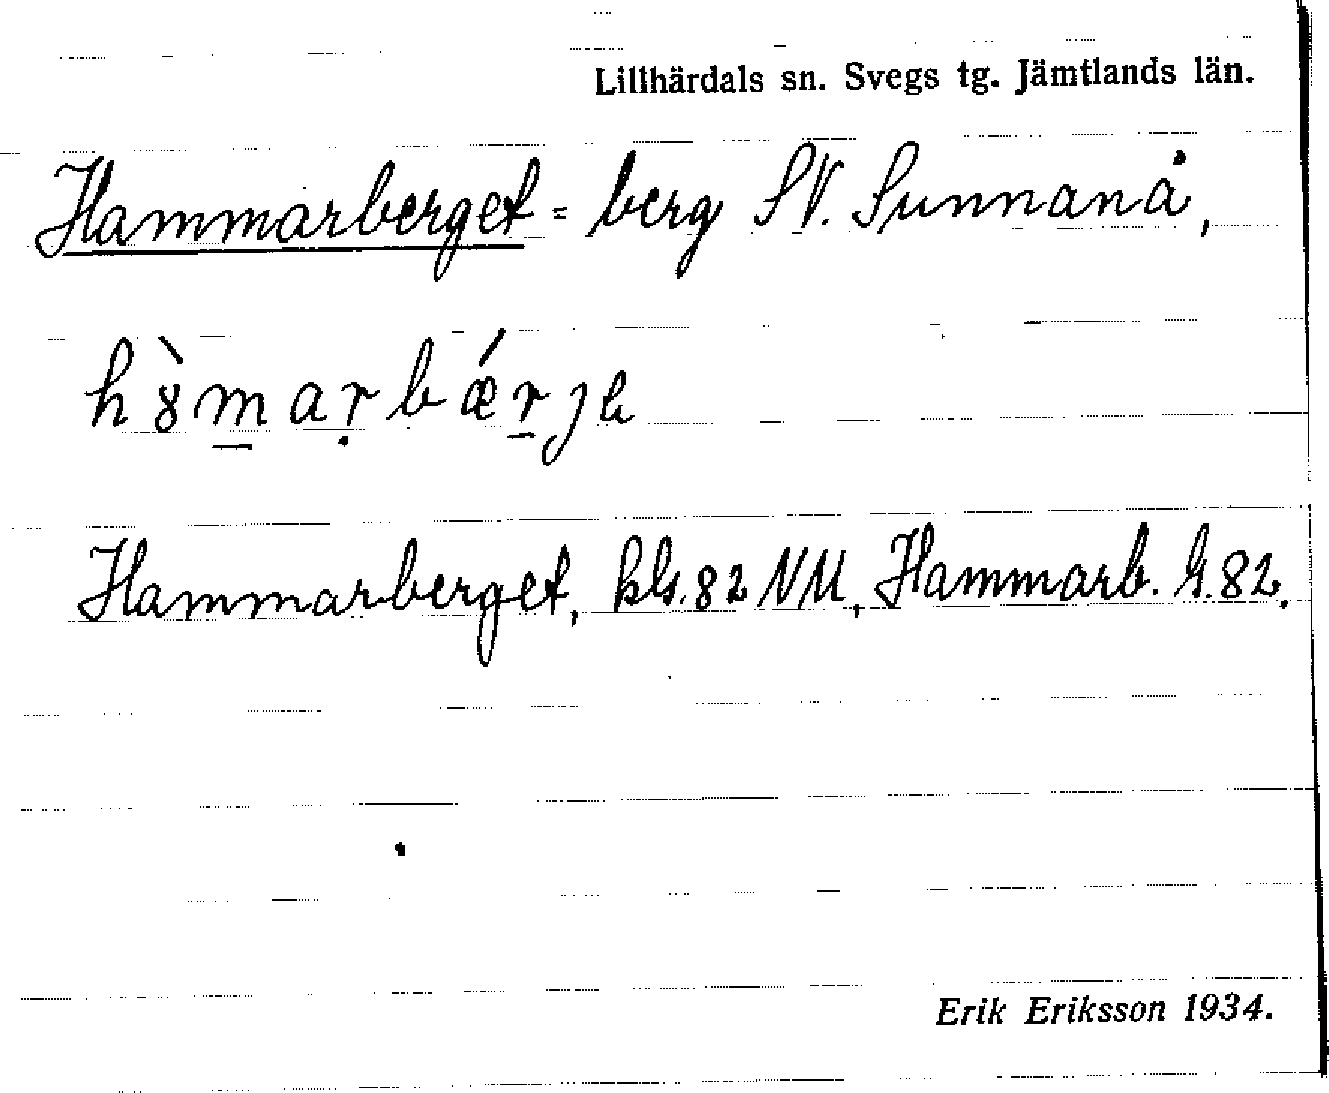 Lillhärdals sn. Svegs tg. Jämtlands län.
Hammarberget = berg SV. Sunnanå,
h8̀m̠aṛbǽr̠ȷe
Hammarberget, kls. 82 NM, Hammarb. G. 82.
Erik Eriksson 1934.